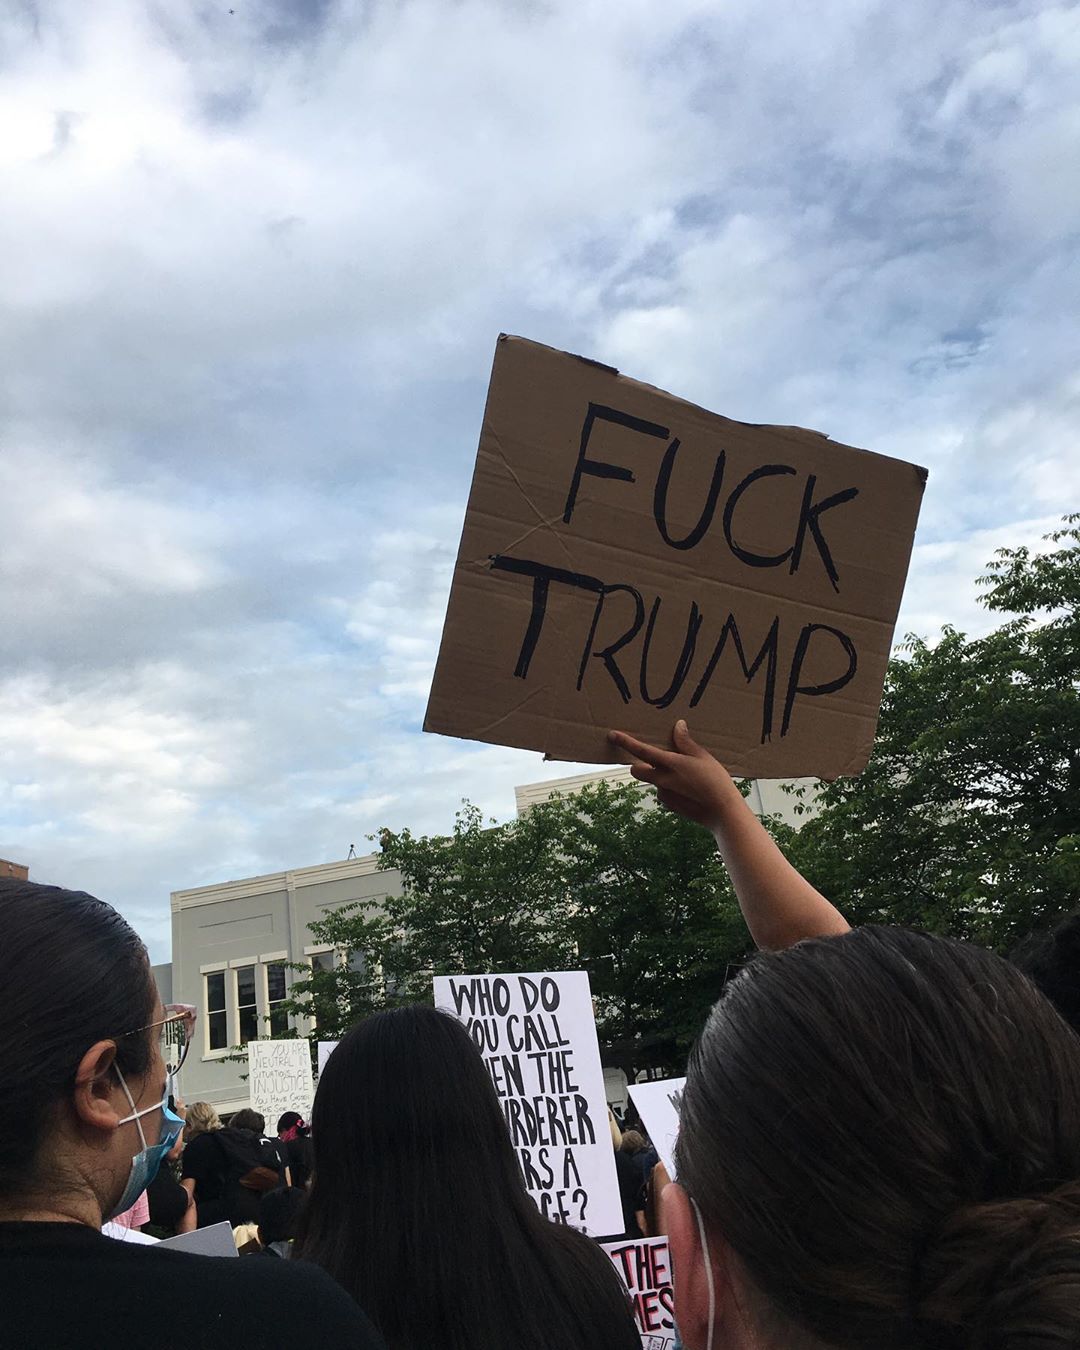 FUCK
TRUMP
WHO DO
YOU CALL
THE
RDERER
RS A
GE?
IF YOU ARE
NEUTRAL IN
SITUATIONS OF
INJUSTICE
YOU HAVE CHOSEN
THE SIDE OF THE
THE
MES